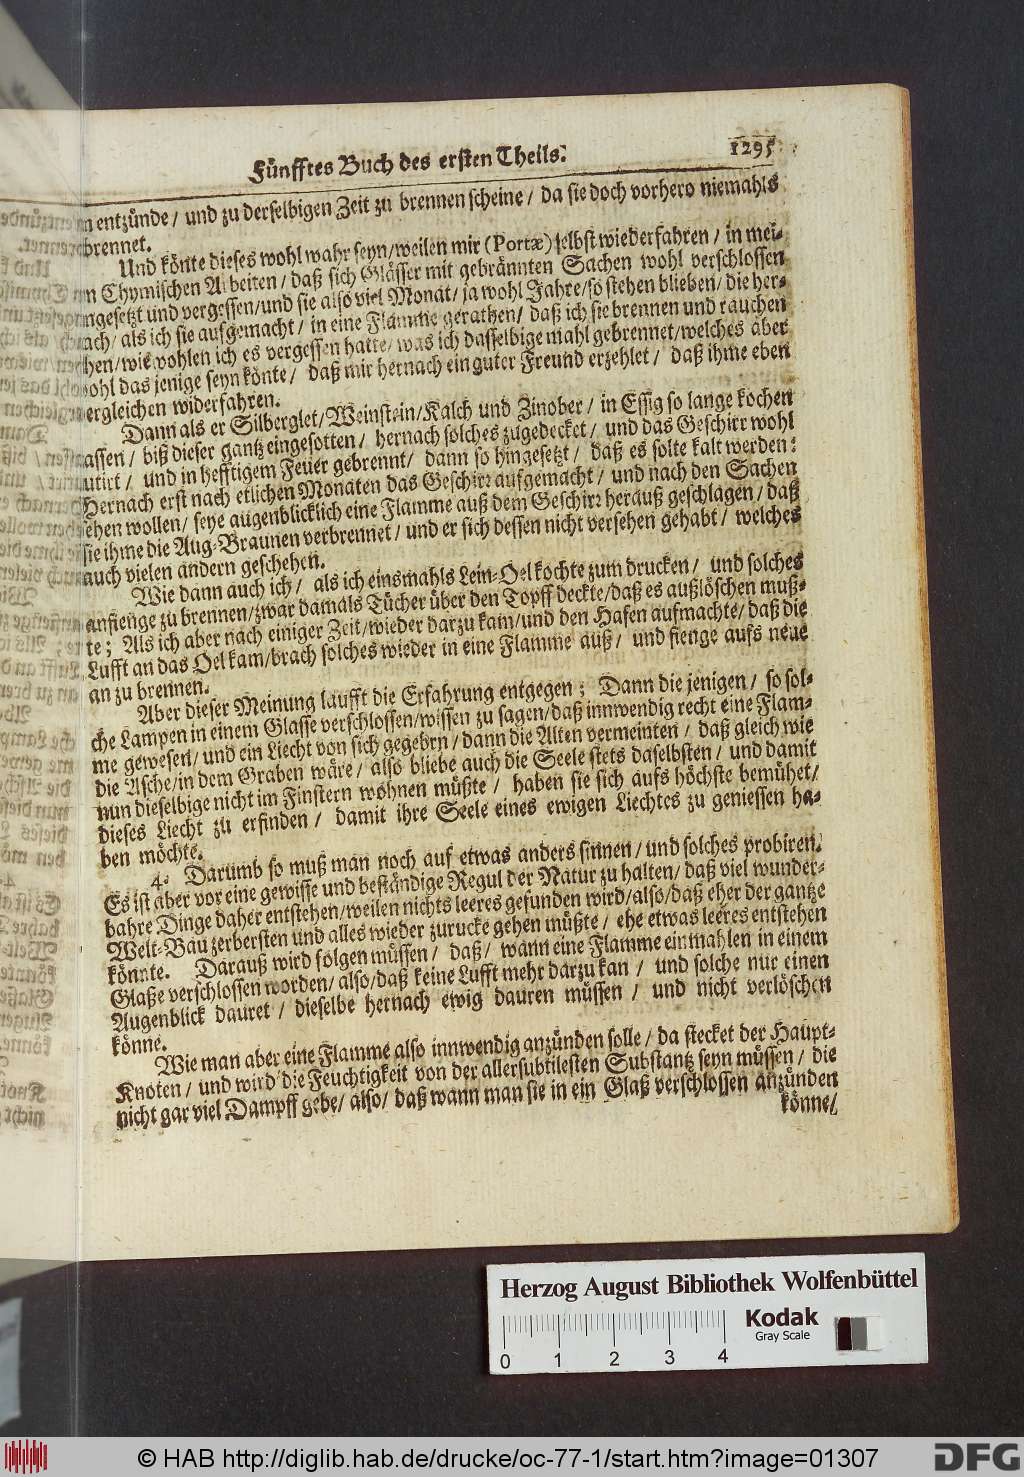 Fünfftes Buch des ersten Theils. 1295
entzünde / und zu derselbigen Zeit zu brennen scheine / da sie doch vorhero niemahls
brennet.
Und könte dieses wohl wahr seyn/weilen mir (Portæ) selbst wiederfahren / in mei-
n Chymischen Arbeiten / daß sich Glässer mit gebrännten Sachen wohl verschlossen
ngesetzt und vergessen/und sie also viel Monat/ ja wohl Jahre/so stehen blieben/ die her-
ach/ als ich sie aufgemacht/ in eine Flamme gerathen/ daß ich sie brennen und rauchen
hen/wiewohlen ich es vergessen hatte/ was ich dasselbige mahl gebrennet/welches aber
ohl das jenige seyn könte/ daß mir hernach ein guter Freund erzehlet / daß ihme eben
ergleichen widerfahren.
Dann als er Silberglet/Weinstein/Kalch und Zinober / in Essig so lange kochen
assen / biß dieser gantz eingesotten / hernach solches zugedecket / und das Geschirr wohl
utirt / und in hefftigem Feuer gebrennt/ dann so hingesetzt / daß es solte kalt werden:
Hernach erst nach etlichen Monaten das Geschirr aufgemacht / und nach den Sachen
sehen wollen/ seye augenblicklich eine Flamme auß dem Geschirr herauß geschlagen / daß
sie ihme die Aug-Braunen verbrennet / und er sich dessen nicht versehen gehabt / welches
auch vielen andern geschehen.
Wie dann auch ich / als ich einsmahls Lein-Oel kochte zum drucken / und solches
anfienge zu brennen/zwar damals Tücher über den Topff deckte/daß es außlöschen muß-
te; Als ich aber nach einiger Zeit/wieder darzu kam/und den Hafen aufmachte/ daß die
Lufft an das Oel kam/brach solches wieder in eine Flamme auß / und fienge aufs neue
an zu brennen.
Aber dieser Meinung laufft die Erfahrung entgegen; Dann die jenigen / so sol-
che Lampen in einem Glasse verschlossen/wissen zu sagen/daß innwendig recht eine Flam-
me gewesen/ und ein Liecht von sich gegebrn / dann die Alten vermeinten / daß gleich wie
die Asche/in dem Graben wäre / also bliebe auch die Seele stets daselbsten / und damit
nun dieselbige nicht im Finstern wohnen müßte / haben sie sich aufs höchste bemühet/
dieses Liecht zu erfinden / damit ihre Seele eines ewigen Liechtes zu geniessen ha-
ben möchte.
4. Darumb so muß man noch auf etwas anders sinnen / und solches probiren.
Es ist aber vor eine gewisse und beständige Regul der Natur zu halten/ daß viel wunder-
bahre Dinge daher entstehen/weilen nichts leeres gefunden wird/also/daß eher der gantze
Welt-Bau zerbersten und alles wieder zurucke gehen müßte / ehe etwas leeres entstehen
könnte. Darauß wird folgen müssen / daß/ wann eine Flamme einmahlen in einem
Glaße verschlossen worden/ also/daß keine Lufft mehr darzu kan / und solche nur einen
Augenblick dauret / dieselbe hernach ewig dauren müssen / und nicht verlöschen
könne.
Wie man aber eine Flamme also innwendig anzünden solle / da stecket der Haupt-
Knoten / und wird die Feuchtigkeit von der allersubtilesten Substantz seyn müssen / die
nicht gar viel Dampff gebe/ also/ daß wann man sie in ein Glaß verschlossen anzünden
könne/
Herzog August Bibliothek Wolfenbüttel
Kodak
Gray Scale
0 1 2 3 4
© HAB http://diglib.hab.de/drucke/oc-77-1/start.htm?image=01307
DFG